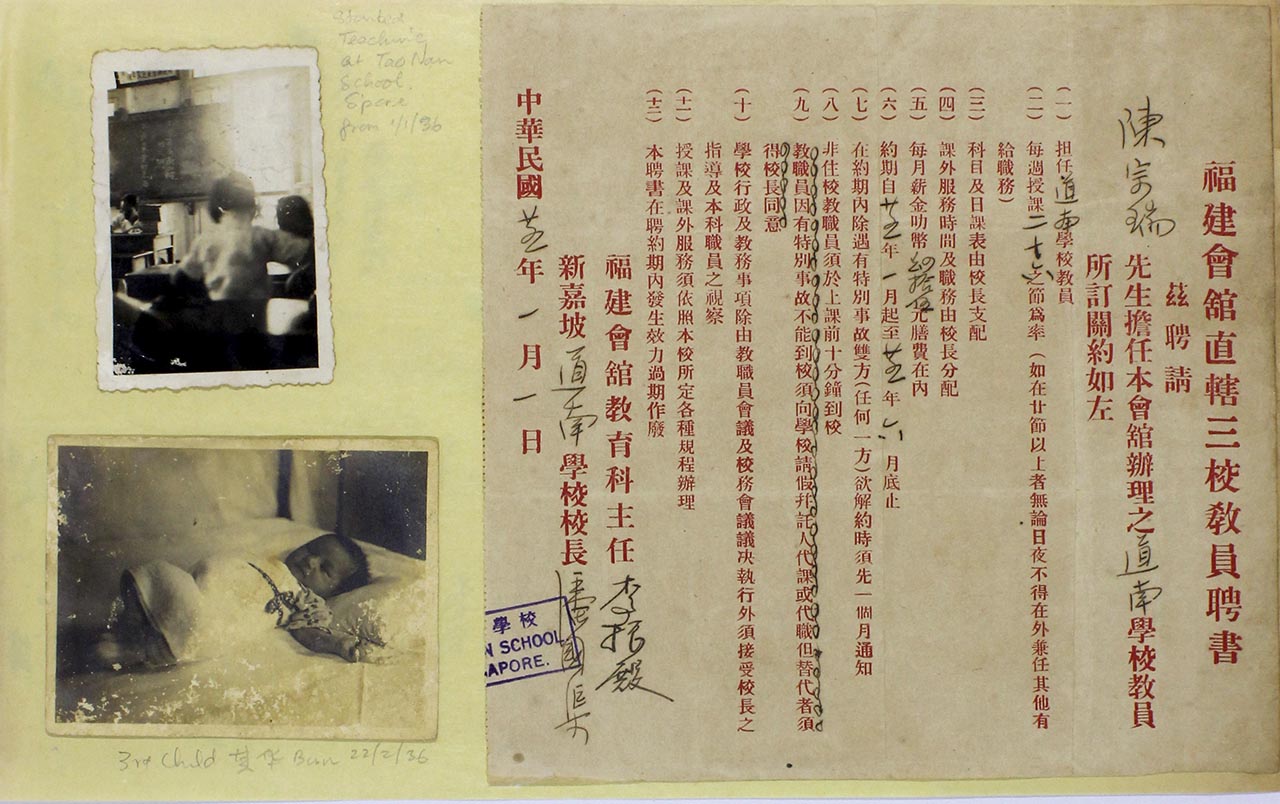 Started
Teaching
at Tao Nan
School.
S'pore
from 1/1/36
3rd Child 其华 Born 22/2/36
福建會舘直轄三校教員聘書
茲聘請
陳宗瑞先生擔任本會舘辦理之道南學校教員
所訂關約如左
(一) 担任道南學校教員
(二) 每週授課二十六之節爲率（如在廿節以上者無論日夜不得在外兼任其他有
給職務）
(三) 科目及日課表由校長支配
(四) 課外服務時間及職務由校長分配
(五) 每月薪金叻幣拾元膳費在內
(六) 約期自廿五年一月起至廿五年六月底止
(七) 在約期內除遇有特別事故雙方(任何一方)欲解約時須先一個月通知
(八) 非住校教職員須於上課前十分鐘到校
(九) 教職員因有特別事故不能到校須向學校請假幷託人代課或代職但替代者須
得校長同意
(十) 學校行政及教務事項除由教職員會議及校務會議議决執行外須接受校長之
指導及本科職員之視察
(十一) 授課及課外服務須依照本校所定各種規程辦理
(十二) 本聘書在聘約期內發生效力過期作廢
福建會舘教育科主任 李振殿
新嘉坡道南學校校長 潘國渠
中華民國廿五年一月一日
學校
N SCHOOL
APORE.